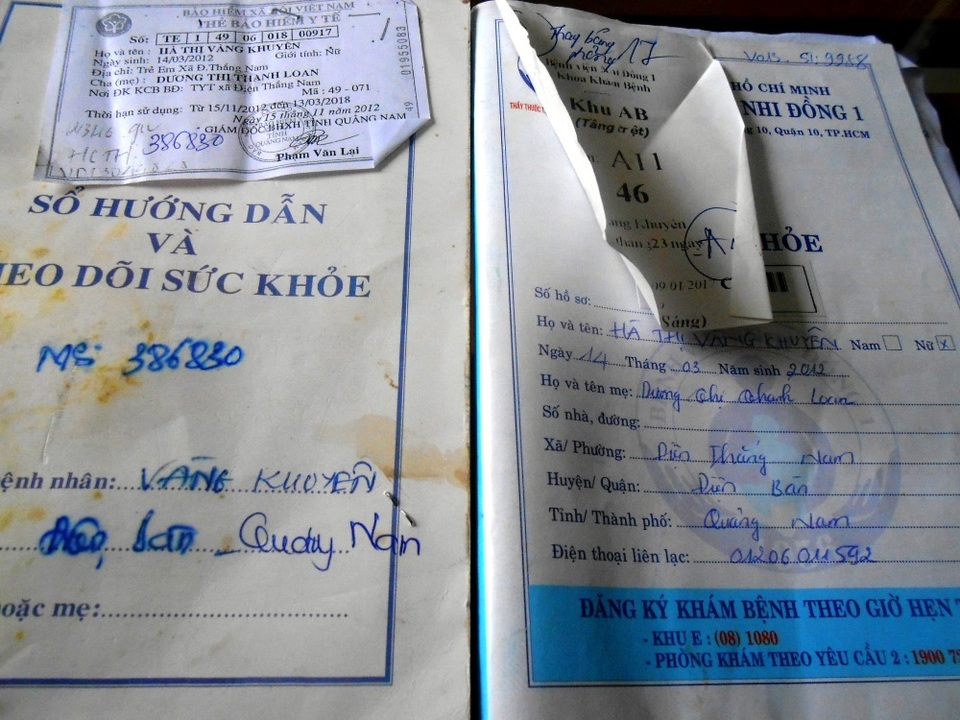 BẢO HIỂM XÃ HỘI VIỆT NAM
THẺ BẢO HIỂM Y TẾ
Số: TE 1 49 06 018 00917
Họ và tên : HÀ THỊ VÀNG KHUYÊN
Ngày sinh: 14/03/2012 Giới tính: Nữ
Địa chỉ: Trẻ Em Xã Đ.Thắng Nam
Cha (mẹ) : DƯƠNG THỊ THANH LOAN
Nơi ĐK KCB BĐ: TYT xã Điện Thắng Nam Mã : 49 - 071
Thời hạn sử dụng: Từ 15/11/2012 đến 13/03/2018
Ngày 15 tháng 11 năm 2012
GIÁM ĐỐC BHXH TỈNH QUẢNG NAM
386830
Phạm Văn Lại
01955083
49
SỔ HƯỚNG DẪN
VÀ
HEO DÕI SỨC KHỎE
MS 386830
ệnh nhân: VÀNG KHUYÊN
Quảng Nam
oặc mẹ:
phòng 17
Bệnh viện Nhi Đồng 1
Khoa Khám Bệnh
Khu AB
(Tầng trệt)
A11
46
ng Khuyên
tháng 23 ngày
09-01-201
Sáng)
THẦY THUỐC
HỒ CHÍ MINH
NHI ĐỒNG 1
10, Quận 10, TP.HCM
HỎE
Số hồ sơ:
Họ và tên: HÀ THỊ VÀNG KHUYÊN Nam Nữ x
Ngày 14 Tháng 03 Năm sinh 2012
Họ và tên mẹ: Dương Thị Thanh Loan
Số nhà, đường:
Xã/ Phường: Điện Thắng Nam
Huyện/ Quận: Điện Bàn
Tỉnh/ Thành phố: Quảng Nam
Điện thoại liên lạc: 01206011592
ĐĂNG KÝ KHÁM BỆNH THEO GIỜ HẸN T
- KHU E : (08) 1080
- PHÒNG KHÁM THEO YÊU CẦU 2 : 1900 7